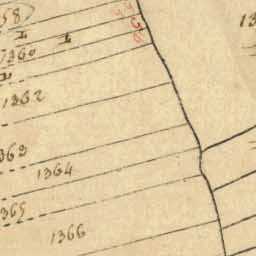 58
13
1360
1362
1363
1364
1365
1366